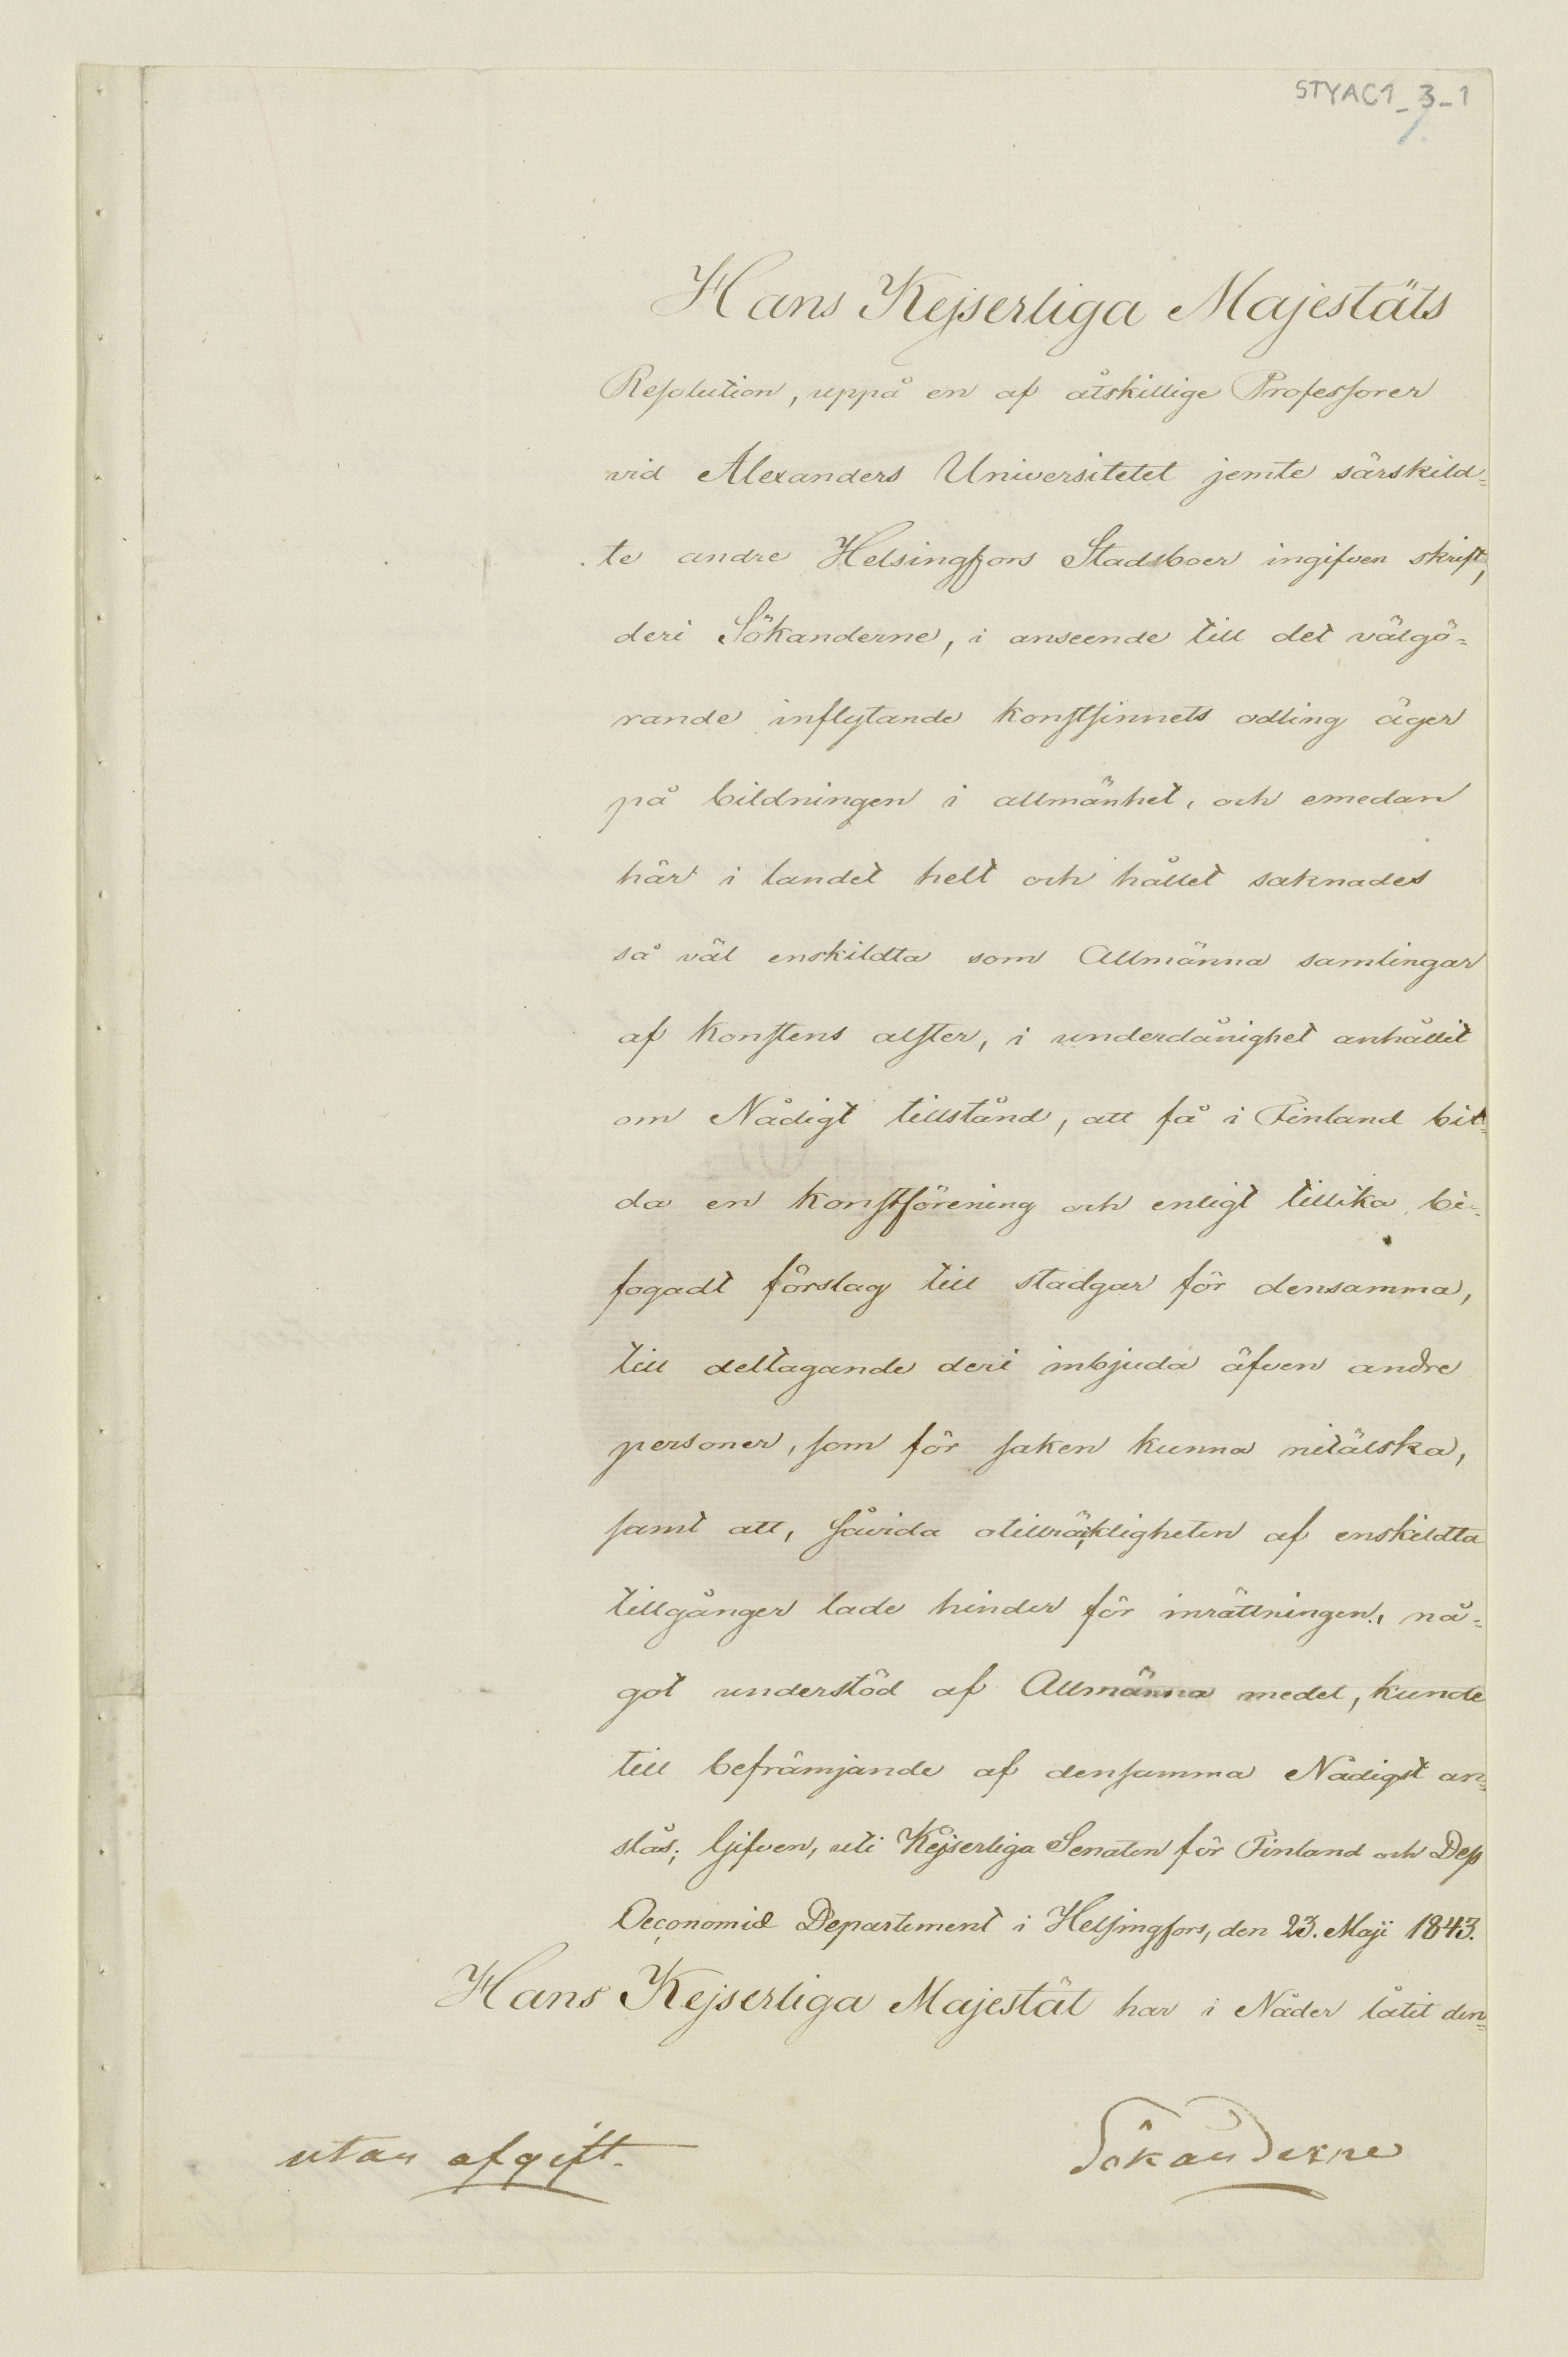 STYAC1_3_1
Hans Kejserliga Majestäts
Resolution, uppå en af åtskillige Professorer
vid Alexanders Universitetet jemte särskild=
te andre Helsingfors Stadsboer ingifven skrift,
deri Sökanderne, i anseende till det välgö=
rande inflytande konstsinnets odling äger
på bildningen i allmänhet, och emedan
här i landet helt och hållet saknades
så väl enskildta som Allmänna samlingar
af konstens alster, i underdånighet anhållit
om Nådigt tillstånd, att få i Finland bil=
da en konstförening och enligt tillika bi=
fogadt förslag till stadgar för densamma,
till deltagande deri inbjuda äfven andre
personer, som för saken kunna nitälska,
samt att, såvida otillräckligheten af enskildta
tillgånger lade hinder för inrättningen, nå=
got understöd af Allmänna medel, kunde
till befrämjande af densamma Nådigst an=
slås; Gifven, uti Kejserliga Senaten för Finland och Dess
Oeconomiæ Departement i Helsingfors, den 23. Maji 1843.
Hans Kejserliga Majestät har i Nåder låtit den=
utan afgift.
Sökanderne